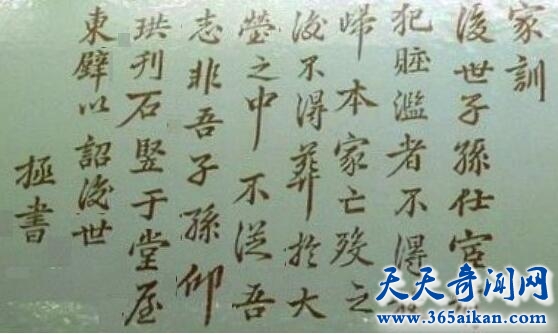 家訓
後世子孫仕宦有
犯賍濫者不得放
歸本家亡歿之
後不得葬於大
塋之中不從吾
志非吾子孫仰
珙刊石竪于堂屋
東壁以詔後世
拯書
天天奇闻网
www.365aikan.com